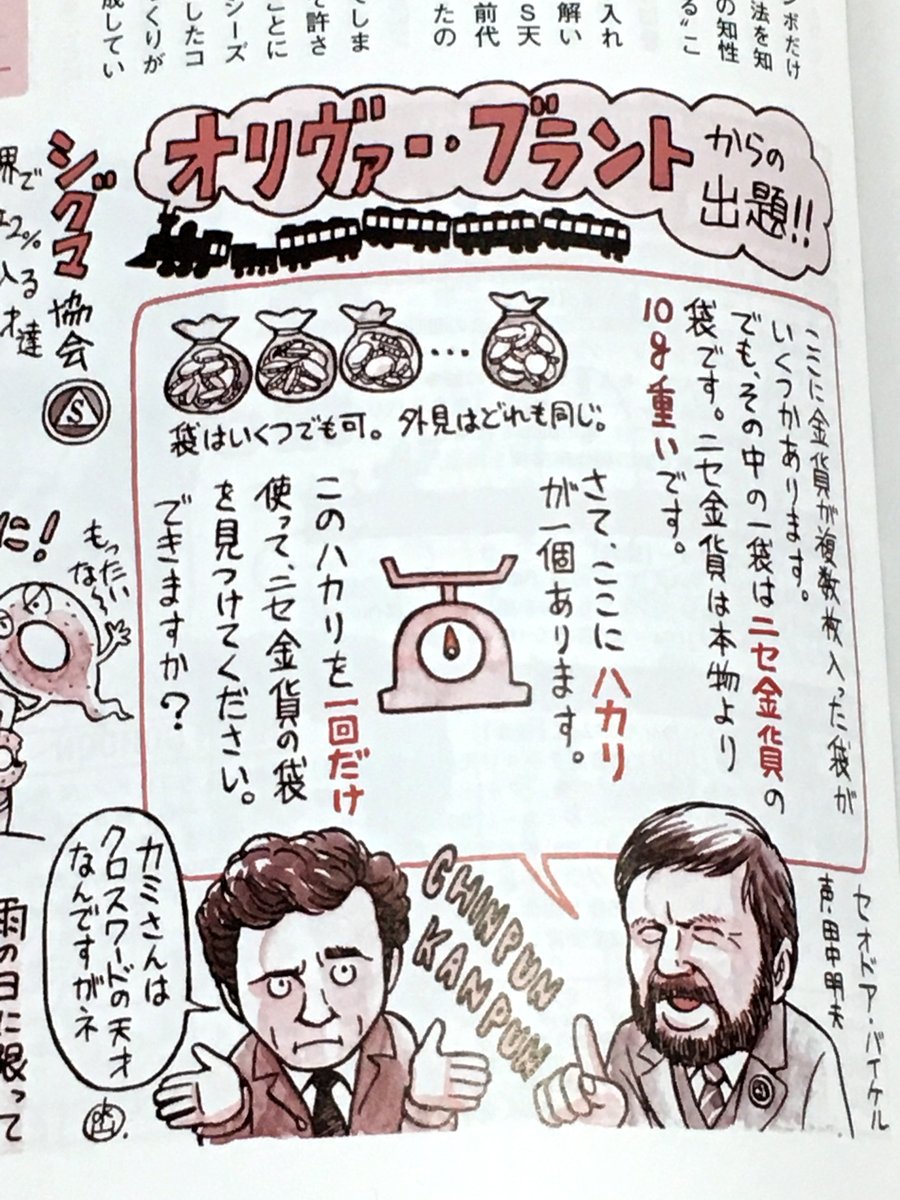 ンボだけ
法を知
の知性
る"こ
入れ
解い
S天
前代
たの
てしま
を許さ
ことに
シーズ
したコ
くりが
成してい
オリヴァー・ブラント
からの
出題!!
シグマ
協会
S
界で
2%
入る
才達
ここに金貨が複数枚入った袋が
いくつかあります。
でも、その中の一袋はニセ金貨の
袋です。ニセ金貨は本物より
10g重いです。
袋はいくつでも可。外見はどれも同じ。
さて、ここにハカリ
が一個あります。
このハカリを一回だけ
使って、ニセ金貨の袋
を見つけてください。
できますか?
だ!
もったい
な〜い
CHINPUN
KANPUN
カミさんは
クロスワードの天才
なんですがネ
セオドア・バイケル
声・田中明夫
雨の日に限って